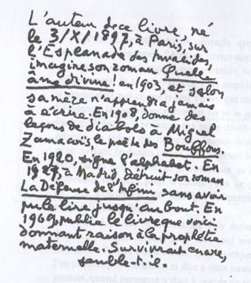 L'auteur de ce livre, né
le 3/X/1897, à Paris, sur
l'Esplanade des Invalides,
imagine son roman Quelle
âme divine! en 1903, et selon
sa mère n'apprendra jamais
à écrire. En 1908, donne des
leçons de diabolo à Miguel
Zamacoïs, le poète des Bouffons.
En 1920, signe l'alphabet. En
1927, à Madrid, détruit son roman
La Défense de l'Infini sans avoir
pu le lire jusqu'au bout. En
1969, publie le livre que voici
donnant raison à la prophétie
maternelle. Survivrait encore,
semble-t-il.